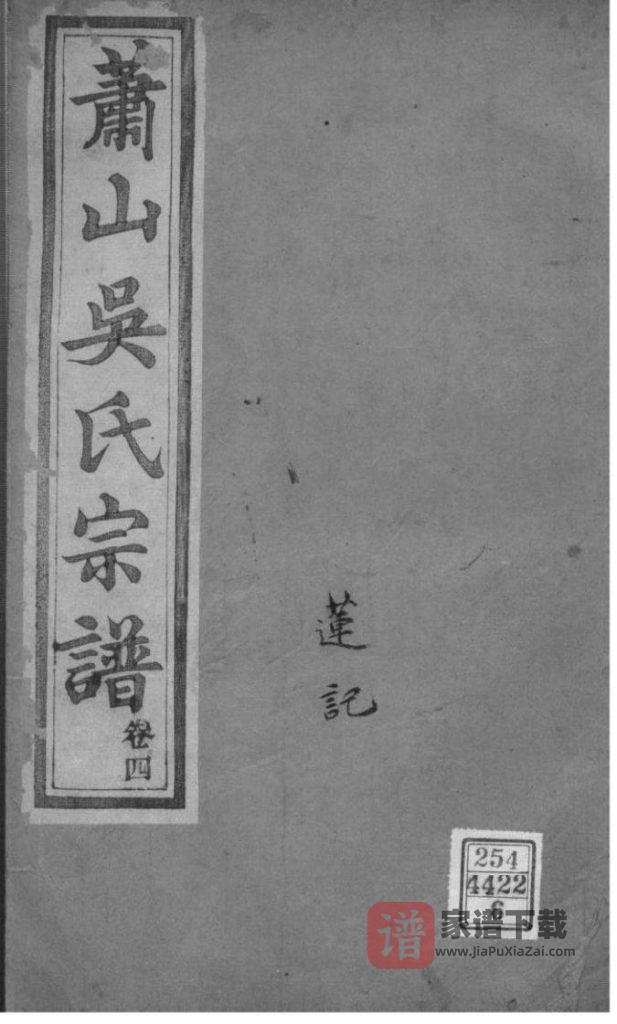 蕭山吳氏宗譜
卷四
蓮記
254
4422
6
谱
家谱下载
www.JiaPuXiaZai.com